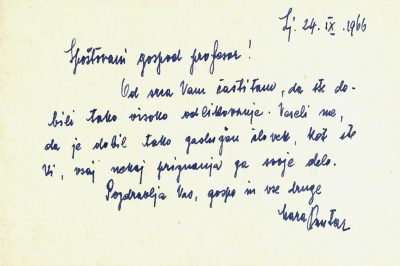 Lj. 24. IX. 1966
Spoštovani gospod profesor!
Od srca Vam čestitamo, da ste do-
bili tako visoko odlikovanje. Veseli me,
da je dobil tako zaslužen človek, kot ste
Vi, vsaj nekaj priznanja za svoje delo.
Pozdravlja Vas, gospo in vse druge